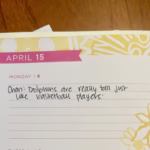 APRIL 15
MONDAY
Chan: Dolphins are really tall just
like basketball players.